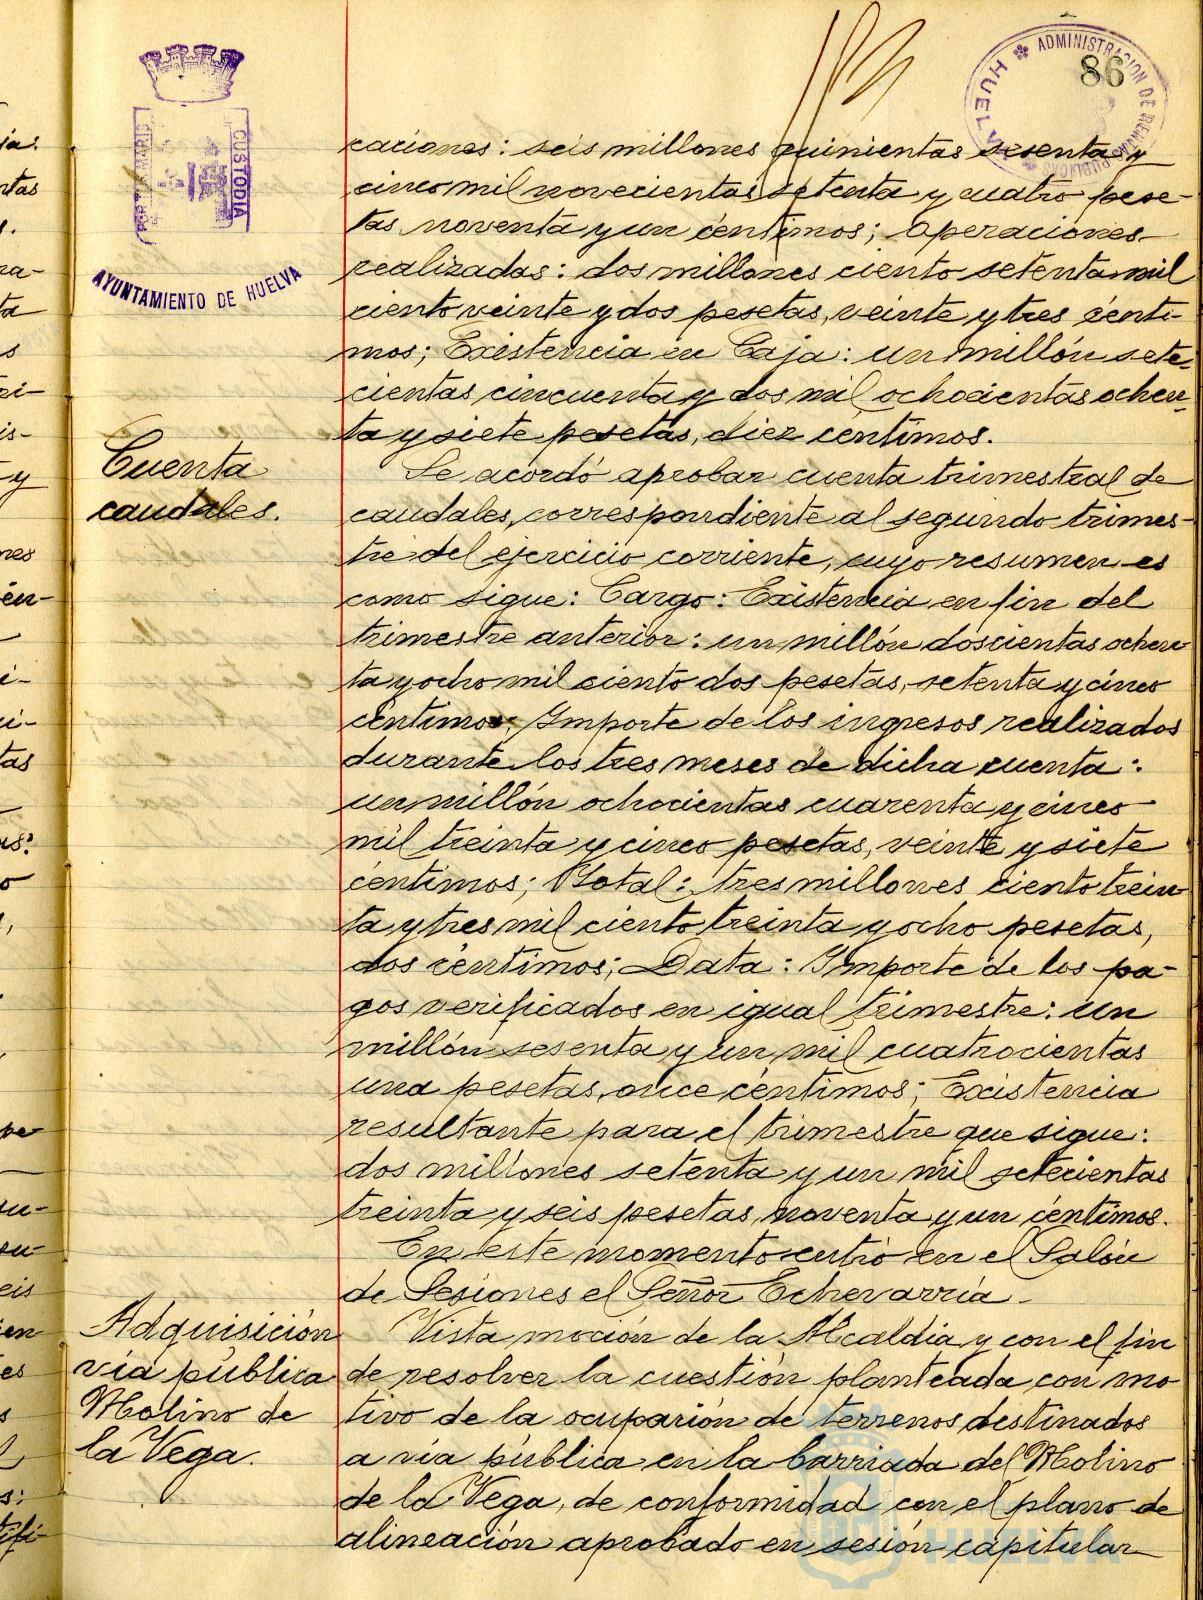 86
ADMINISTRACION DE RENTAS PUBLICAS
HUELVA
CUSTODIA
AYUNTAMIENTO DE HUELVA
caciones: seis millones quinientas sesenta y
cinco mil novecientas setenta y cuatro pese-
tas, noventa y un céntimos; Operaciones
realizadas: dos millones ciento setenta mil
ciento veinte y dos pesetas, veinte y tres cénti-
mos; Existencia en Caja: un millón sete-
cientas cincuenta y dos mil ochocientas ochen-
ta y siete pesetas, diez centimos.
Cuenta
caudales.
Se acordó aprobar cuenta trimestral de
caudales, correspondiente al segundo trimes-
tre del ejercicio corriente, cuyo resumen es
como sigue: Cargo: Existencia en fin del
trimestre anterior: un millón doscientas ochen
ta y ocho mil ciento dos pesetas, setenta y cinco
céntimos; Importe de los ingresos realizados
durante los tres meses de dicha cuenta:
un millón ochocientas cuarenta y cinco
mil treinta y cinco pesetas, veinte y siete
céntimos; Total: tres millones ciento trein
ta y tres mil ciento treinta y ocho pesetas,
dos céntimos; Data: Importe de los pa-
gos verificados en igual trimestre: un
millón sesenta y un mil cuatrocientas
una pesetas, once céntimos; Existencia
resultante para el trimestre que sigue:
dos millones setenta y un mil setecientas
treinta y seis pesetas, noventa y un céntimos.
En este momento entró en el Salón
de Sesiones el Señor Echevarría.-
Adquisición
vía pública
Molino de
la Vega.
Vista moción de la Alcaldía y con el fin
de resolver la cuestión planteada con mo
tivo de la ocupación de terrenos destinados
a vía pública en la barriada del Molino
de la Vega, de conformidad con el plano de
alineación aprobado en sesión capitular
HUELVA